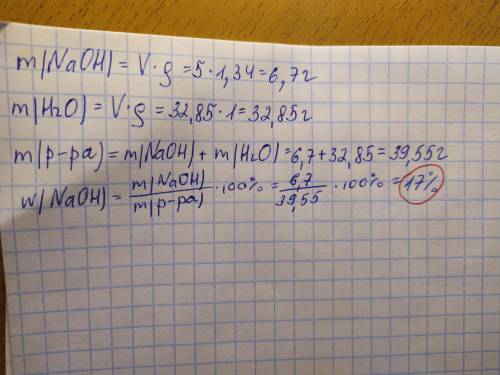 m(NaOH) = V·ρ = 5·1,34 = 6,7г
m(H₂O) = V·ρ = 32,85·1 = 32,85г
m(р-ра) = m(NaOH) + m(H₂O) = 6,7 + 32,85 = 39,55г
w(NaOH) = m(NaOH)/m(р-ра) · 100% = 6,7/39,55 · 100% = 17%